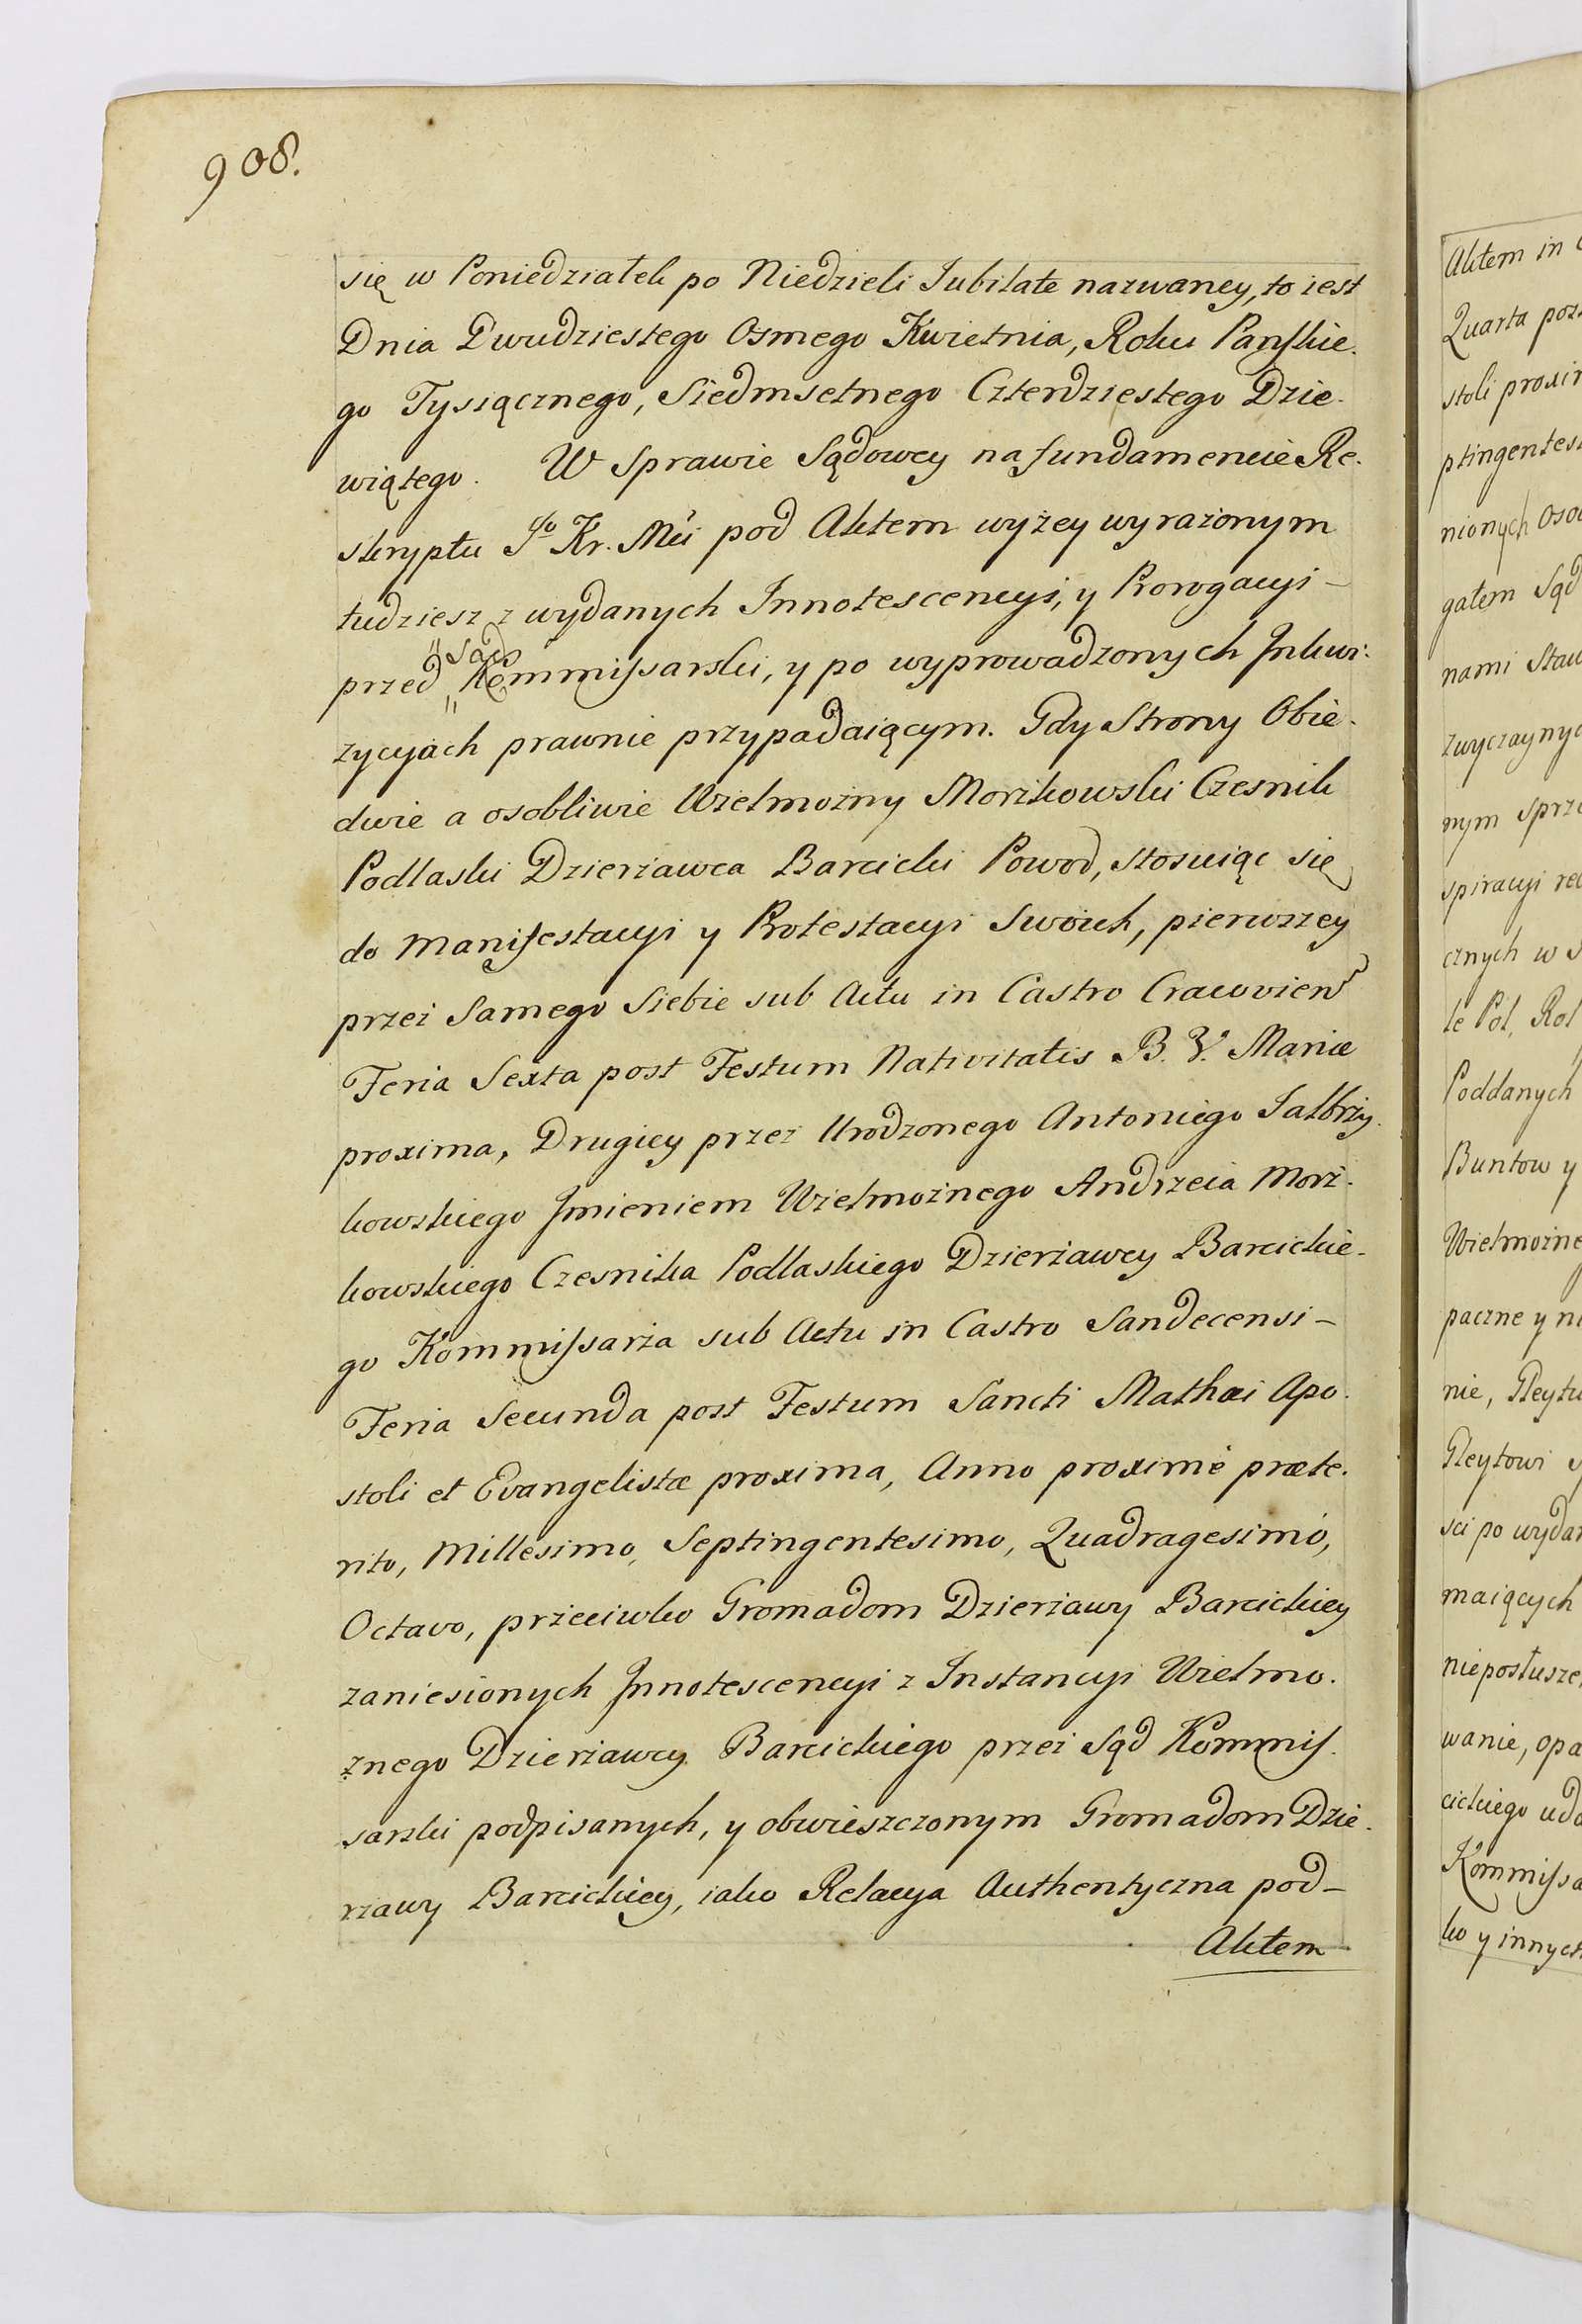 908.
się w Poniedziałek po Niedzieli Jubilate nazwaney, to iest
Dnia Dwudziestego Osmego Kwietnia, Roku Panskie-
go Tysiącznego, Siedmsetnego Czterdziestego Dzie-
wiątego. W Sprawie Sądowey na fundamencie Re-
skryptu Jgo Kr. Mci pod Aktem wyżey wyrażonym
tudziesz z wydanych Innotescencyi, y Prorogacyi –
przed " Sąd " Kommissarski, y po wyprowadzonych Inkwi-
zycyach prawnie przypadaiącym. Gdy Strony Obie-
dwie a osobliwie Wielmożny Morzkowski Czesnik
Podlaski Dzierżawca Barcicki Powod, stosuiąc się
do Manifestacyi y Protestacyi Swoich, pierwszey
przez Samego Siebie sub Actu in Castro Cracovien
Feria Sexta post Festum Nativitatis B. V. Mariæ
proxima, Drugiey przez Urodzonego Antoniego Salbrzy-
kowskiego Imieniem Wielmożnego Andrzeia Morz-
kowskiego Czesnika Podlaskiego Dzierżawcy Barcickie-
go Kommissarza sub Actu in Castro Sandecensi –
Feria Secunda post Festum Sancti Mathæi Apo-
stoli et Evangelistæ proxima, Anno proximé præte-
rito, Millesimo, Septingentesimo, Quadragesimó,
Octavo, przeciwko Gromadom Dzierżawy Barcickiey
zaniesionych Innotescencyi z Instancyi Wielmo-
żnego Dzierżawcy Barcickiego przez Sąd Kommis-
sarski podpisanych, y obwieszczonym Gromadom Dzie-
rżawy Barcickiey, iako Relacya Authentyczna pod –
Aktem
Aktem in
Quarta pos
stoli proxi
ptingentes
nionych Oso
gatem Sąd
nami Staw
zwyczaynyc
nym sprz
spiracyi re
cznych w
le Pol, Rol
Poddanych
Buntow y
Wielmożne
paczne y ni
nie, Gleytu
Gleytowi
sci po wydan
maiących
nieposłusze
wanie, opa
cickiego uda
Kommissa
ko y innych